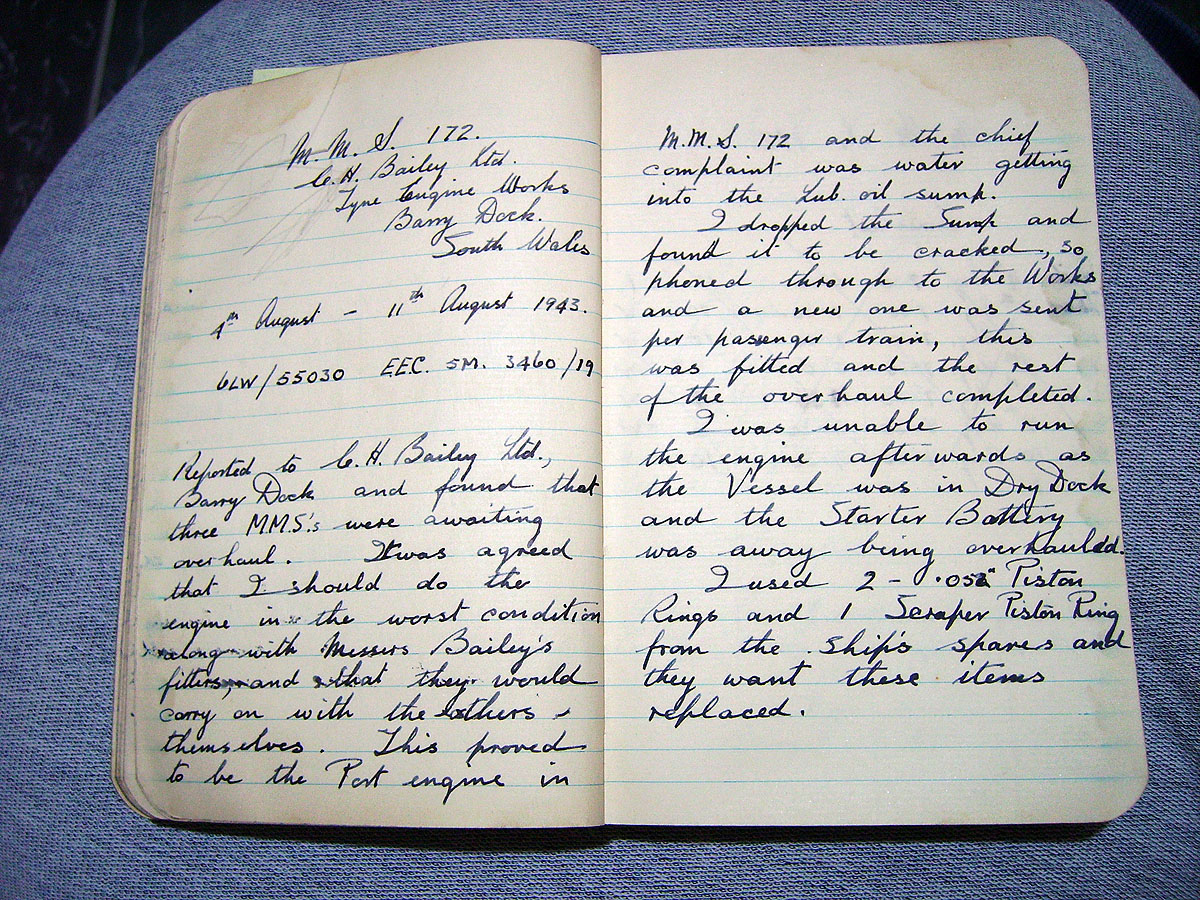 M.M.S. 172.
C.H. Bailey Ltd.
Tyne Engine Works
Barry Dock.
South Wales
4th August - 11th August 1943.
6LW/55030 EEC. 5M. 3460/19
Reported to C.H. Bailey Ltd.,
Barry Dock and found that
three MMS's were awaiting
overhaul. It was agreed
that I should do the
engine in the worst condition
along with Messers Bailey's
fitters, and that they would
carry on with the others
themselves. This proved
to be the Port engine in
M.M.S. 172 and the chief
complaint was water getting
into the Lub. oil sump.
I dropped the Sump and
found it to be cracked, so
phoned through to the Works
and a new one was sent
per passenger train, this
was fitted and the rest
of the overhaul completed.
I was unable to run
the engine afterwards as
the Vessel was in Dry Dock
and the Starter Battery
was away being overhauled.
I used 2 - Piston
Rings and 1 Scraper Piston Ring
from the ship's spares and
they want these items
replaced.